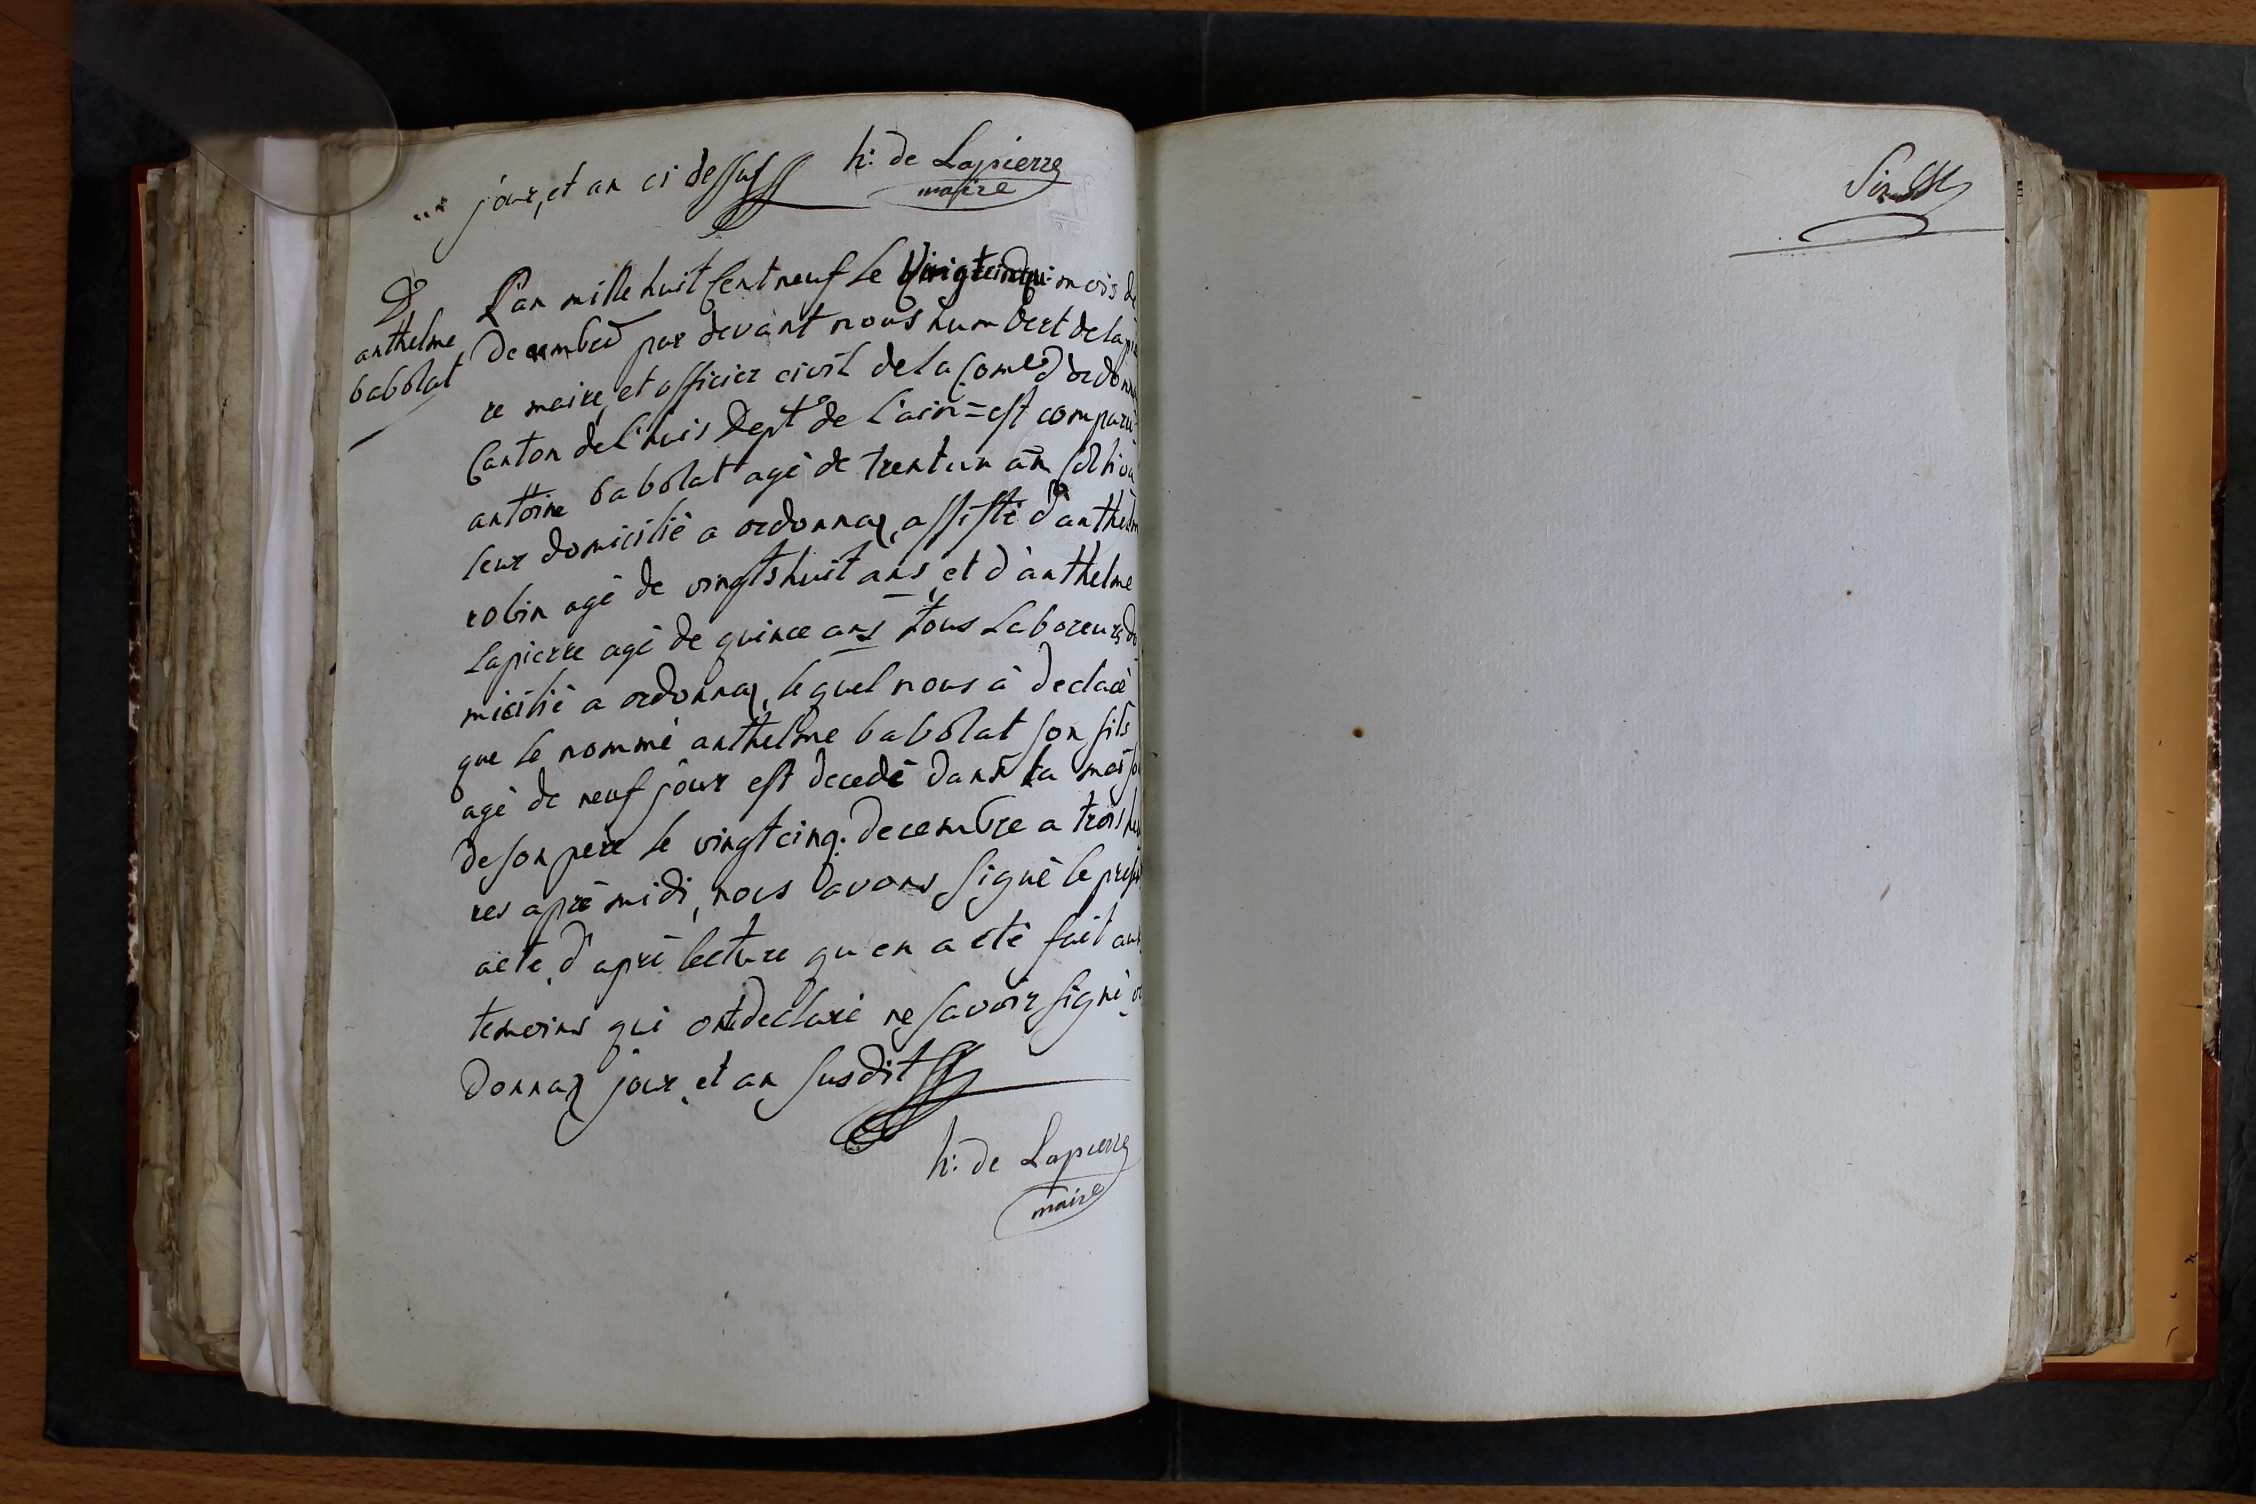 jour, et an ci dessus h: de Lapierre
maire
D.
anthelme
babolat
L'an mille huit Cent neuf le vingtcinq mois de
decembre par devant nous humbert delapier
re maire, et officier civil de la Come d'ordonna
Canton de l'huis Dept de L'ain = est comparu
antoine babolat agé de trentun an Coltiva
teur domicilié a ordonnaz, assisté d'anthelm
robin agé de vingtshuit ans, et d'anthelme
Lapierre agé de quince ans tous Laboreurs do
micilié a ordonnaz, lequel nous à declaré
que le nommé anthelme babolat son fils
agé de neuf jour est decedé dans la maiso
de son pere le vingtcinq. decembre a trois heu
res apré midi, nous avons signé le present
acte, d'apré lecture qu'en a eté fait aux
temoins qui ont declaré ne savoir signé or
donnaz jour, et an susdit
h: de Lapierre
maire